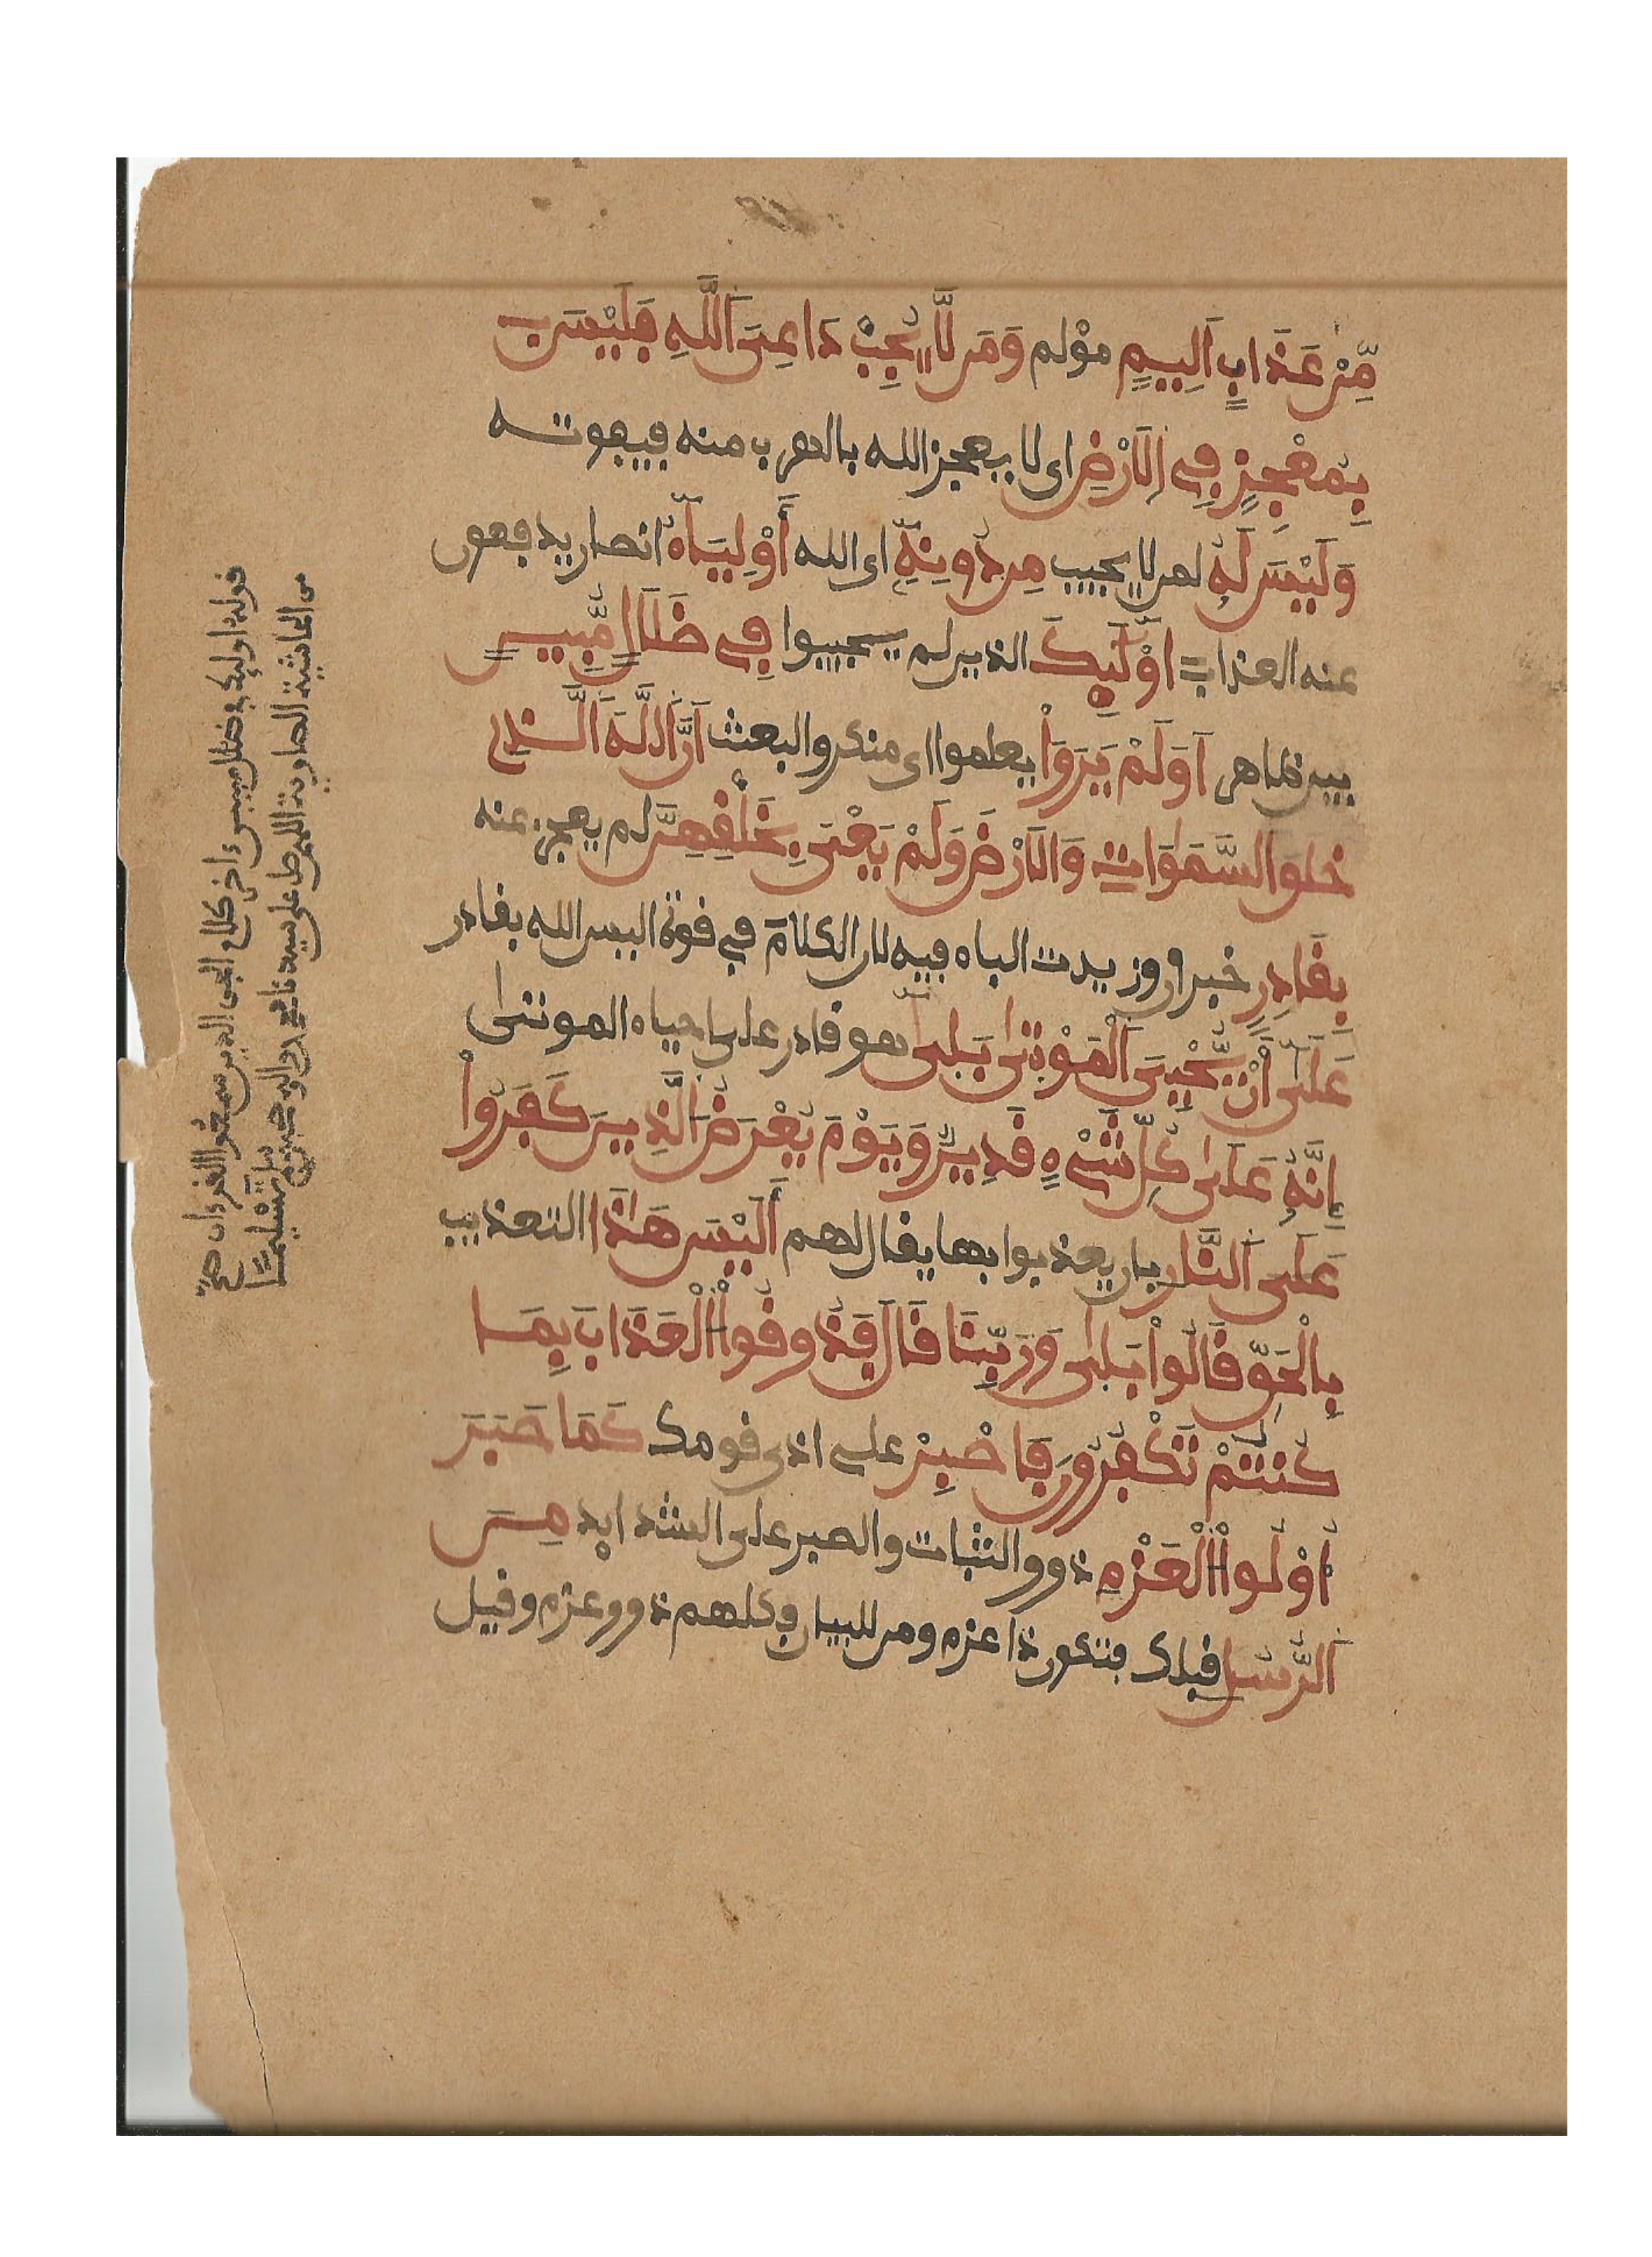 مِّنْ عَذَابٍ اَلِيمٍ مؤلم وَمَن لَّا يُجِبْ دَاعِيَ اَللَّهِ فَلَيْسَ
بِمُعْجِزٍ فِي اِلَارْضِ اى لا يعجز الله بالهرب منه فيفوته
وَلَيْسَ لَهُ لمن لا يجيب مِن دُونِهِ اى الله أَوْلِيَآءُ انصار يدفعون
عنه العذاب اُوْلَٰٓئِكَ الذين لم يجيبوا فِي ضَلَٰلٍ مُّبِينٍ
بين ظاهر اَوَلَمْ يَرَوْاْ يعلموا اى منكروا البعث أَنَّ اَللَّهَ اَلَّذِي
خَلَقَ اَلسَّمَٰوَٰتِ وَالَارْضَ وَلَمْ يَعْيَ بِخَلْقِهِنَّ لم يعجز عنه
بِقَٰدِرٍ خبر ان وزيدت الباء فيه لان الكلام في قوة اليس الله بقادر
عَلَىٰ أَنْ يُّحْيِيَ اَلْمَوْتَىٰ بَلَىٰٓ هو قادر على احياء الموتى
إِنَّهُ عَلَىٰ كُلِّ شَيْءٍ قَدِيرٌ وَيَوْمَ يُعْرَضُ اَلَّذِينَ كَفَرُواْ
عَلَى اَلنَّارِ بان يعذبوا بها يقال لهم أَلَيْسَ هَٰذَا التعذيب
بِالْحَقِّ قَالُواْ بَلَىٰ وَرَبِّنَا قَالَ فَذُوقُواْ اُلْعَذَابَ بِمَا
كُنتُمْ تَكْفُرُونَ فَاصْبِرْ على اذى قومك كَمَا صَبَرَ
أُوْلُواْ اُلْعَزْمِ ذوو الثبات والصبر على الشدايد مِنَ
اَلرُّسُلِ قبلك فتكون ذا عزم ومن للبيان فكلهم ذوو عزم وقيل
قوله اوليك في ضلل مبين ءاخر كلام الجن الذين سمعوا القرءان صح
من الحاشية الصاوية اللهم صل على سيدنا محمد واله وصحبه وسلم
تسليما